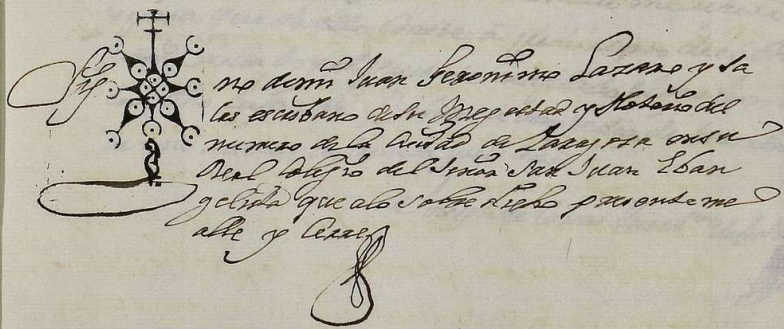 Sig no de mi Juan Geronimo Lazaro y Sa
las escribano de su Magestad y Notario del
numero de la Ciudad de Zaragoza en su
Real Colegio del Señor San Juan Eban
gelista que a lo sobre dicho presente me
alle y cerre